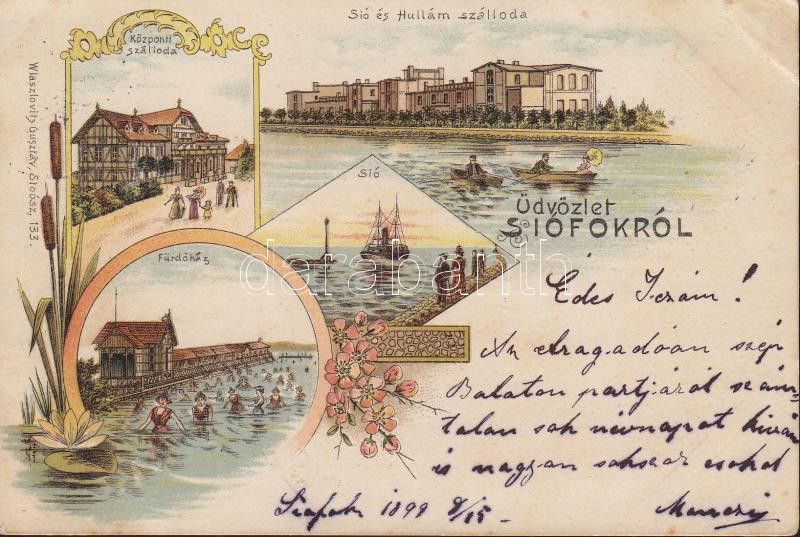 Központi
szálloda
Sió és Hullám szálloda
Sió
Üdvözlet
SIÓFOKRÓL
Fürdőház
Wlaszlovits Gusztáv, Siófok, 133.
darabanth
Édes Iczám!
Az elragadóan szép
Balaton partjáról szám-
talan sok névnapot kíván
és nagyon sokszor csókol
Manczi
Siófok 1899 8/15